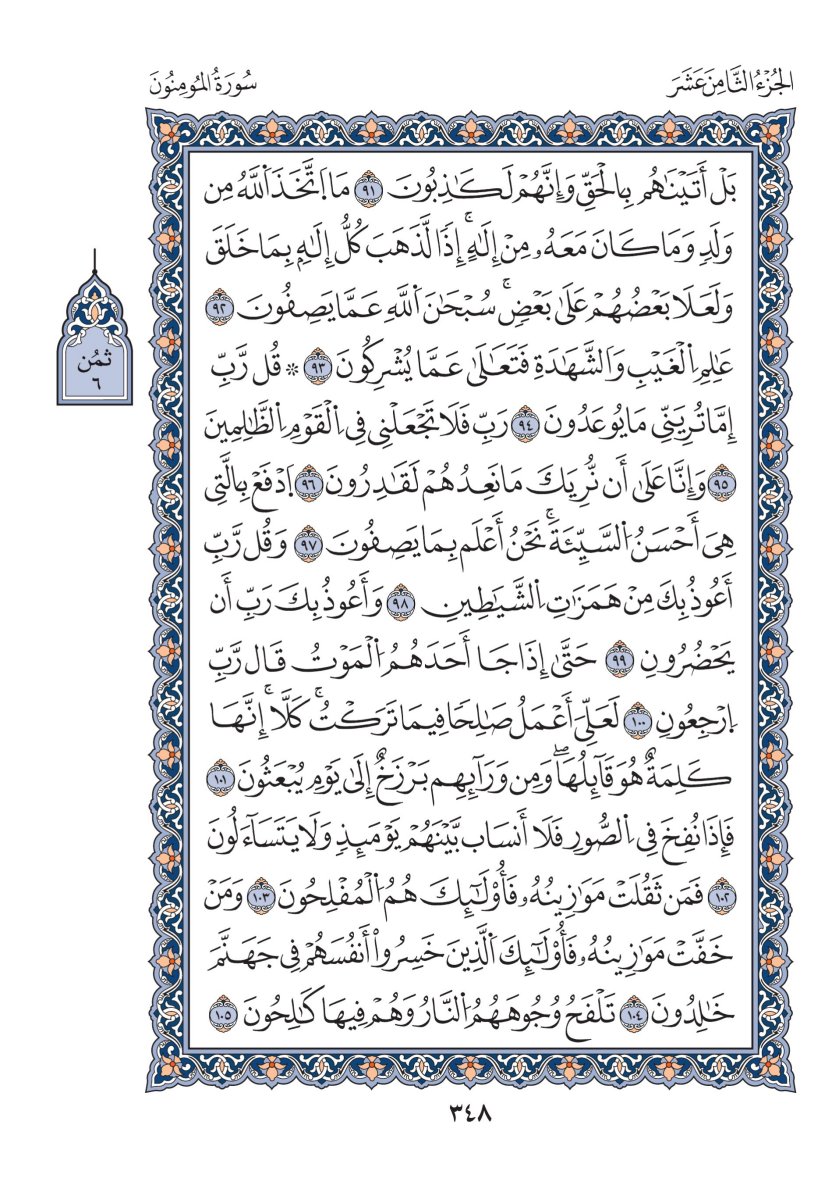 الجُزْءُ الثَّامِنَ عَشَرَ
سُورَةُ المُومِنُونَ
بَلْ أَتَيْنَٰهُم بِالْحَقِّ وَإِنَّهُمْ لَكَٰذِبُونَ ٩١ مَا اَتَّخَذَ اَللَّهُ مِن
وَلَدٖ وَمَا كَانَ مَعَهُۥ مِنِ إِلَٰهٍۚ إِذٗا لَّذَهَبَ كُلُّ إِلَٰهِۢ بِمَا خَلَقَ
وَلَعَلَا بَعْضُهُمْ عَلَىٰ بَعْضٖۚ سُبْحَٰنَ اَللَّهِ عَمَّا يَصِفُونَ ٩٢
عَٰلِمِ اِلْغَيْبِ وَالشَّهَٰدَةِ فَتَعَٰلَىٰ عَمَّا يُشْرِكُونَ ٩٣ ۞ قُل رَّبِّ
ثُمُن
٦
إِمَّا تُرِيَنِّي مَا يُوعَدُونَ ٩٤ رَبِّ فَلَا تَجْعَلْنِي فِي اِلْقَوْمِ اِلظَّٰلِمِينَ
٩٥ وَإِنَّا عَلَىٰ أَن نُّرِيَكَ مَا نَعِدُهُمْ لَقَٰدِرُونَ ٩٦ اِدْفَعْ بِالَّتِي
هِيَ أَحْسَنُ اُلسَّيِّئَةَۚ نَحْنُ أَعْلَم بِمَا يَصِفُونَ ٩٧ وَقُل رَّبِّ
أَعُوذُ بِكَ مِنْ هَمَزَٰتِ اِلشَّيَٰطِينِ ٩٨ وَأَعُوذُ بِكَ رَبِّ أَن
يَحْضُرُونِ ٩٩ حَتَّىٰ إِذَا جَا أَحَدَهُمُ اُلْمَوْتُ قَال رَّبِّ
اِرْجِعُونِ ١٠٠ لَعَلِّيَ أَعْمَلُ صَٰلِحٗا فِيمَا تَرَكْتُۚ كَلَّاۚ إِنَّهَا
كَلِمَةٌ هُوَ قَآئِلُهَاۖ وَمِن وَرَآئِهِم بَرْزَخٌ إِلَىٰ يَوْمِ يُبْعَثُونَ ١٠١
فَإِذَا نُفِخَ فِي اِلصُّورِ فَلَا أَنسَاب بَّيْنَهُمْ يَوْمَئِذٖ وَلَا يَتَسَآءَلُونَ
١٠٢ فَمَن ثَقُلَتْ مَوَٰزِينُهُۥ فَأُوْلَٰٓئِكَ هُمُ اُلْمُفْلِحُونَ ١٠٣ وَمَنْ
خَفَّتْ مَوَٰزِينُهُۥ فَأُوْلَٰٓئِكَ اَلَّذِينَ خَسِرُواْ أَنفُسَهُمْ فِي جَهَنَّمَ
خَٰلِدُونَ ١٠٤ تَلْفَحُ وُجُوهَهُمُ اُلنَّارُ وَهُمْ فِيهَا كَٰلِحُونَ ١٠٥
٣٤٨